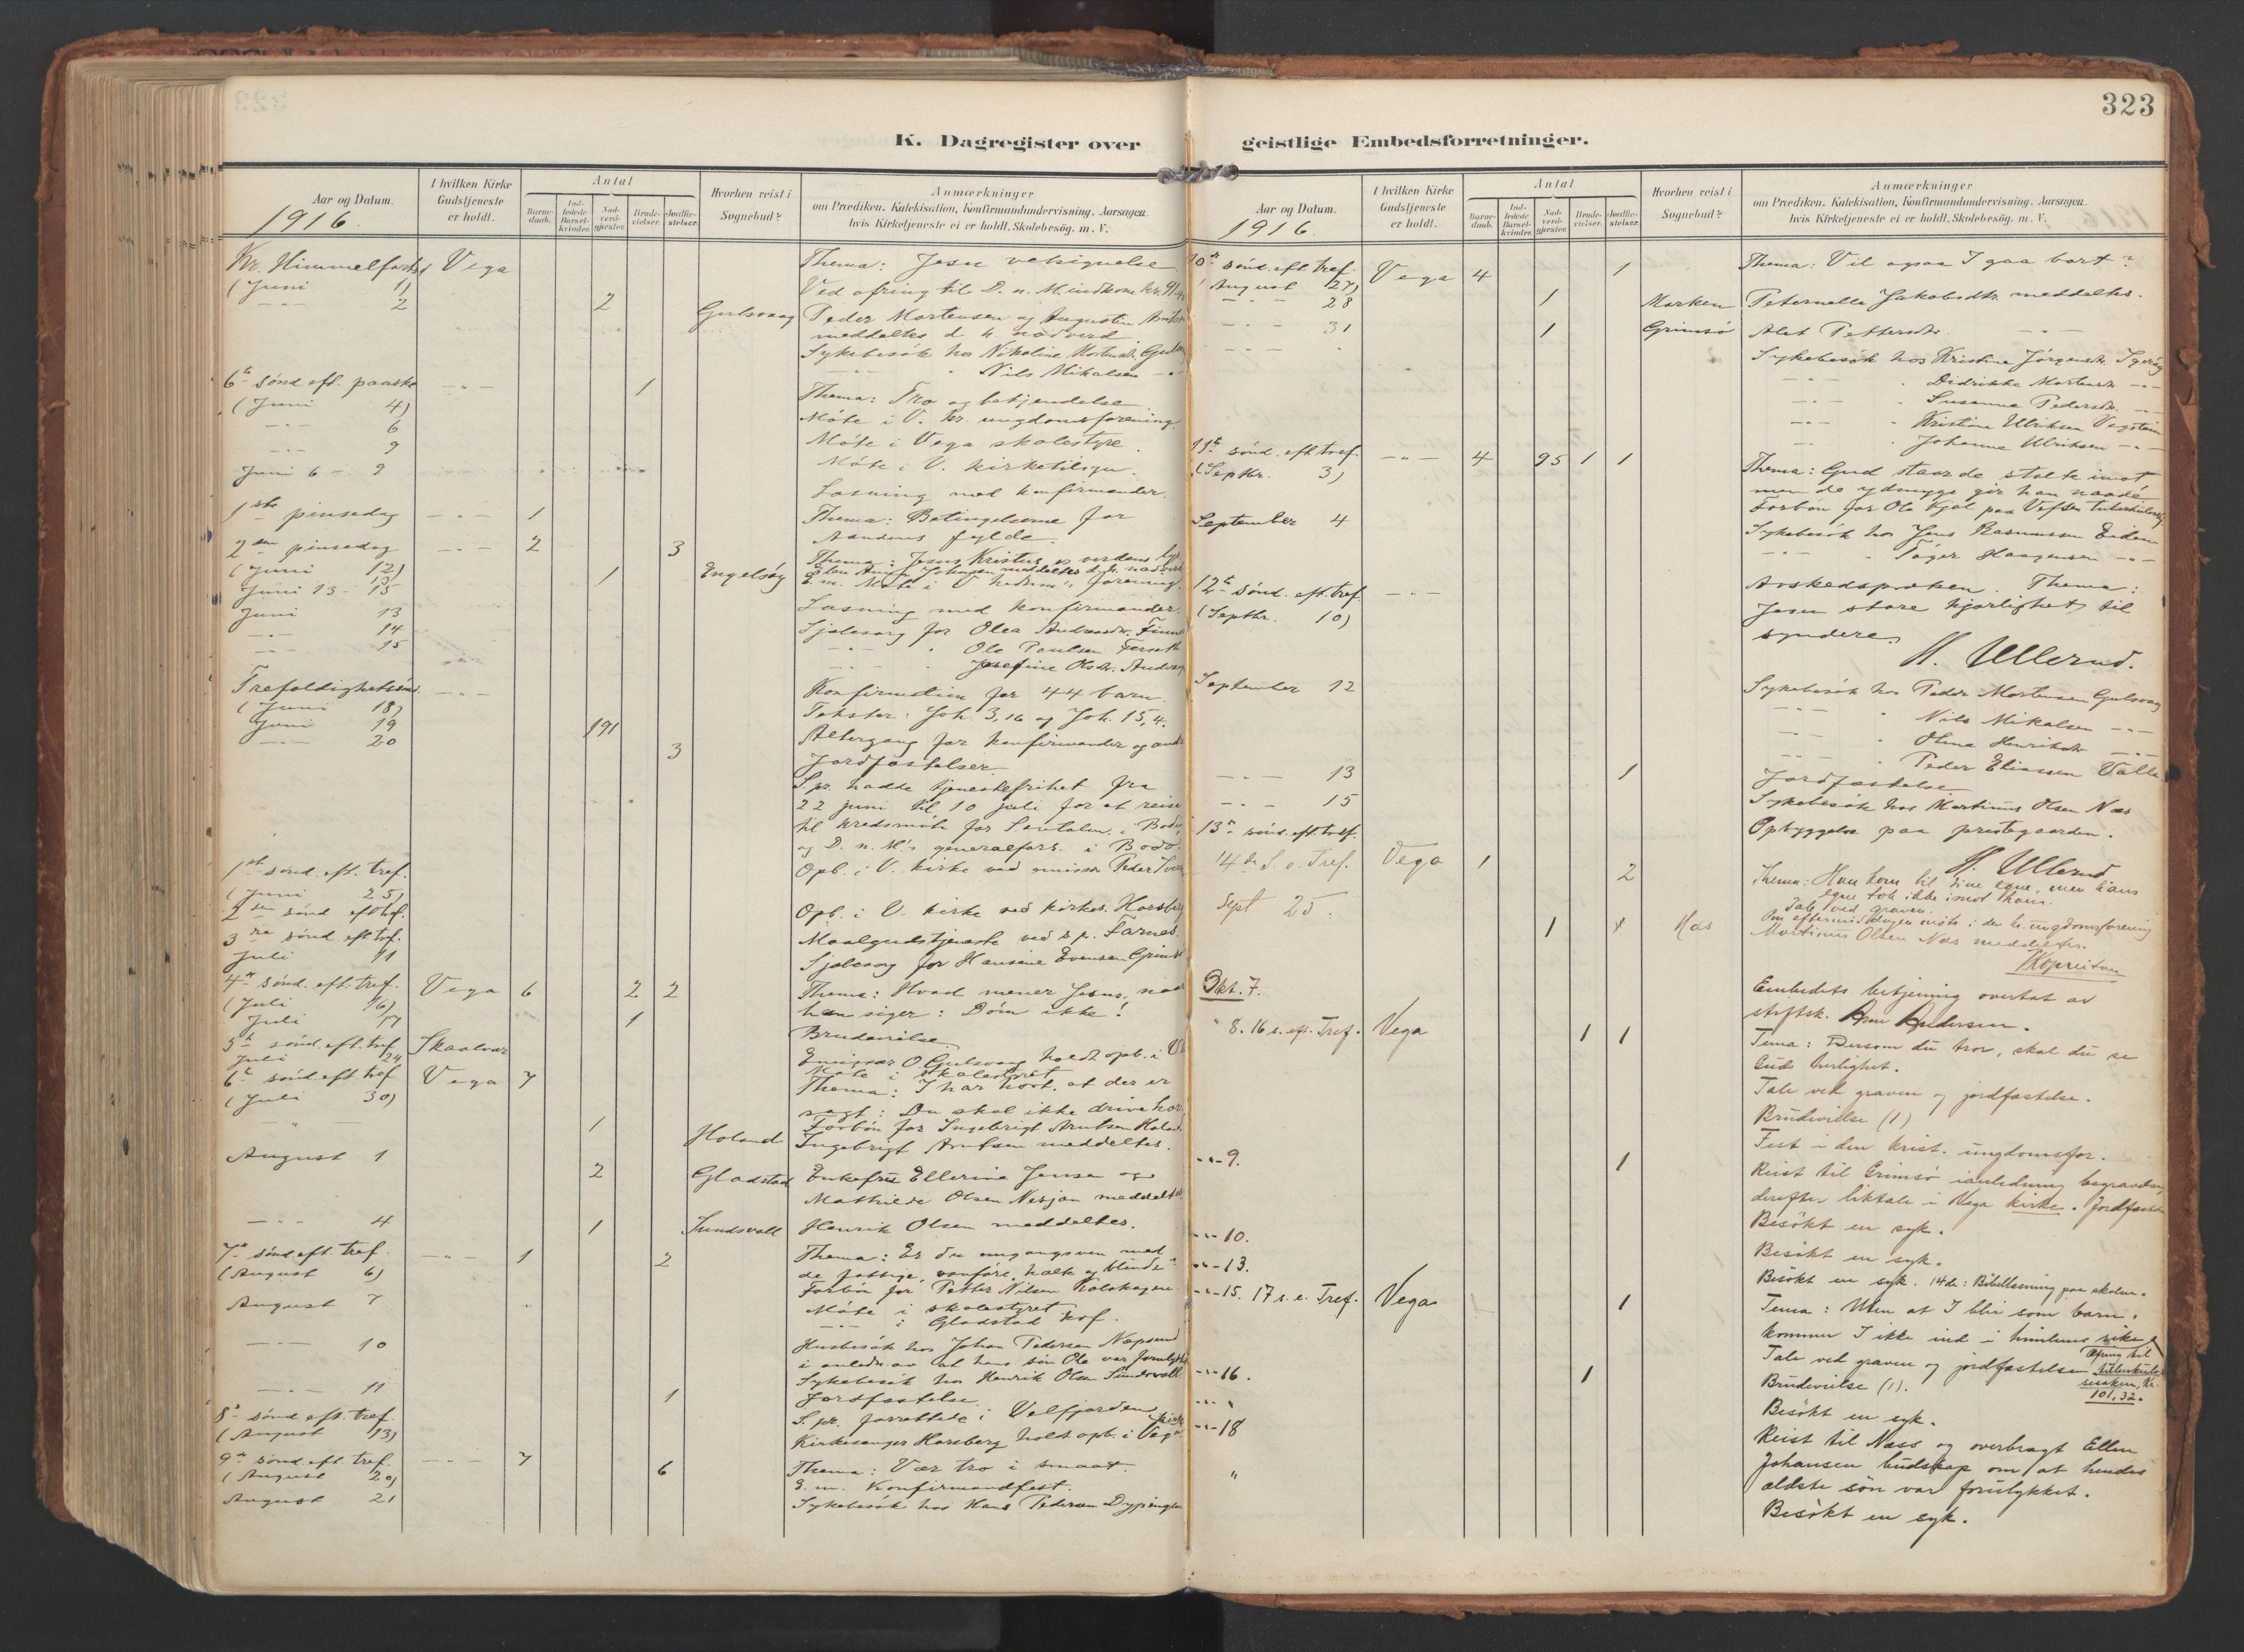 323
K. Dagregister over geistlige Embedsforretninger.
Aar og Datum.
1916.
I hvilken Kirke Gudstjeneste er holdt.
Antal
Barne-daab.
Ind-ledede Barsel-kvinder.
Nad-verd-gjester.
Brude-vielser.
Jordfæ-stelser.
Hvorhen reist i Sognebud?
Anmærkninger
om Prædiken, Katekisation, Konfirmandundervisning, Aarsagen
hvis Kirketjeneste ei er holdt, Skolebesög, m. V.
Kr. Himmelfarts Vega Thema: Jesu velsignelse
(Juni 1) Ved ofring til D. n. M. indkom kr. 91
2 2 Gulsvaag Peder Mortensen og Augustin
meddeltes d. h. nadverd
Sykebesøk hos Nikoline
Nils Mikalsen
6te sønd. eft. paaske 1 Thema: Tro og bekjendelse
(Juni 4) Møte i V. kr. ungdomsforening.
6 Møte i Vega skolestyre.
9 Møte i V. kirketilsyn.
Juni 6 - 9 Læsning med konfirmander.
1ste pinsedag 1 Thema: Betingelserne for
Aandens fylde.
2den pinsedag 2 3 Thema: Jesus Kristus verdens lys
(Juni 12) 1 Engelsøy Johnsen meddeltes d. h. nadverd
E. m. Møte i V. forening.
Juni 13 - 15 Læsning med konfirmander.
Juni 13 Sjælesorg for Olea
14 Ole Paulsen
15 Josefine Olsdr.
Trefoldighetssønd. Konfirmation for 44 barn.
(Juni 18) Tekster: Joh. 3,16 og Joh. 15,4.
Juni 19 191 Altergang for konfirmander og
20 3 Jordfæstelser
S. pr. hadde tjenestefrihet fra
22 juni til 10 juli for at reise
til kredsmøte for i Bodø
og D. n. M.'s generalfors. i Bodø.
1ste sønd. eft. tref. Opb. i V. kirke ved Peder
(Juni 25)
2den sønd. eft. tref. Opb. i V. kirke ved kirkes. Horsberg
3die sønd. eft. tref. Maalgudstjeneste ved s. p. Farnes.
Juli 11 Sjælesorg for Hansine Evensen
4de sønd. eft. tref. Vega 6 2 2 Thema: Hvad mener Jesus, naar
(Juli 16) han siger: Døm ikke!
Juli 17 1 Brudevielse
5te sønd. eft. tref. Skaalvær Emissær O. Gulsvaag holdt opb. i V.
Juli 24 Møte i skolestyret
6te sønd. eft. tref. Vega 7 Thema: I har hørt, at der er
(Juli 30) sagt: Du skal ikke drive hor.
Forbøn for Ingebrigt Arntsen
1 Holand Ingebrigt Arntsen meddeltes.
August 1 2 Gladstad Enkefru Ellerine Jensen og
Mathilde Olsen meddeltes.
4 1 Sundsvoll Henrik Olsen meddeltes.
7de sønd. eft. tref. 1 2 Thema: Er du omgangsven med
(August 6) de fattige, vanføre, halte og blinde?
Forbøn for Petter Nilsen
August 7 Møte i skolestyret
i Gladstad
10 Husbesøk hos Johan Pedersen
i anledn. av at hans søn Ole var forulykket
Sykebesøk hos Henrik Olsen Sundsvoll
11 1 Jordfæstelse.
8de sønd. eft. tref. S. pr. forrettede i Velfjorden
(August 13) Kirkesanger Horsberg holdt opb. i Vega kirke
9de sønd. eft. tref. 7 6 Thema: Vær tro i smaat.
(August 20) E. m. Konfirmandfest.
August 21 Sykebesøk hos Hans Pedersen
Aar og Datum.
1916.
I hvilken Kirke Gudstjeneste er holdt.
Antal
Barne-daab.
Ind-ledede Barsel-kvinder.
Nad-verd-gjester.
Brude-vielser.
Jordfæ-stelser.
Hvorhen reist i Sognebud?
Anmærkninger
om Prædiken, Katekisation, Konfirmandundervisning, Aarsagen
hvis Kirketjeneste ei er holdt, Skolebesög, m. V.
10de sønd. eft. tref. Vega 4 1 Thema: Vil ogsaa I gaa bort?
(August 27)
28 1 Marken Peternelle Jakobsdtr. meddeltes.
31 1 Grimsø Alet Pettersdtr.
Sykebesøk hos Kristine Jørgensdtr.
Didrikke
Susanne Pedersdtr.
Kristine Ulriksen
Johanne Ulriksen
11te sønd. eft. tref. 4 95 1 1 Thema: Gud staar de stolte imot
(Septbr. 3) men de ydmyge gir han naade.
Forbøn for Ole paa Vefsen
September 4 Sykebesøk hos Jens Rasmussen Eidem
Haagensen
12te sønd. eft. tref. Avskedspræken. Thema:
(Septbr. 10) Jesu store kjærlighet til
syndere.
H. Ullerud.
September 12 Sykebesøk hos Peder Mortensen Gulsvaag
Nils Mikalsen
Olina
Peder Eliassen
13 1 Jordfæstelse
15 Sykebesøk hos Martinus Olsen Næs
13de sønd. eft. tref. Opbyggelse paa prestegaarden.
H. Ullerud
14de S. e. Tref. Vega 1 2 Thema: Han kom til sine egne, men hans
egne tok ikke imot ham.
Tale ved graven.
Om eftermiddagen møte i den kr. ungdomsforening
Sept 25. 1 Næs Martinus Olsen Næs meddeltes.
Okt. 7. Embedets betjening overtat av
stiftsk. Andersen.
" 8. 16 s. eft. Tref. Vega 1 1 Tema: Dersom du tror, skal du se
Guds herlighet.
Tale ved graven og jordfæstelse.
Brudevielse (1)
Fest i den krist. ungdomsfor.
9. 1 Reist til Grimsø i anledning begravelse,
derefter liktale i Vega kirke. Jordfæstelse
Besøkt en syk.
10. Besøkt en syk.
13. Besøkt en syk. 14de: Bibellæsning paa skolen.
15. 17 s. e. Tref. Vega 1 Tema: Uten at I blir som barn,
kommer I ikke ind i himlenes rike.
Tale ved graven og jordfæstelse. Ofring til
tuberkulosesaken, Kr. 101,32.
16. 1 Brudevielse (1).
Besøkt en syk.
18 Reist til Næss og overbragt Ellen
Johansen budskap om at hendes
ældste søn var forulykket.
" Besøkt en syk.